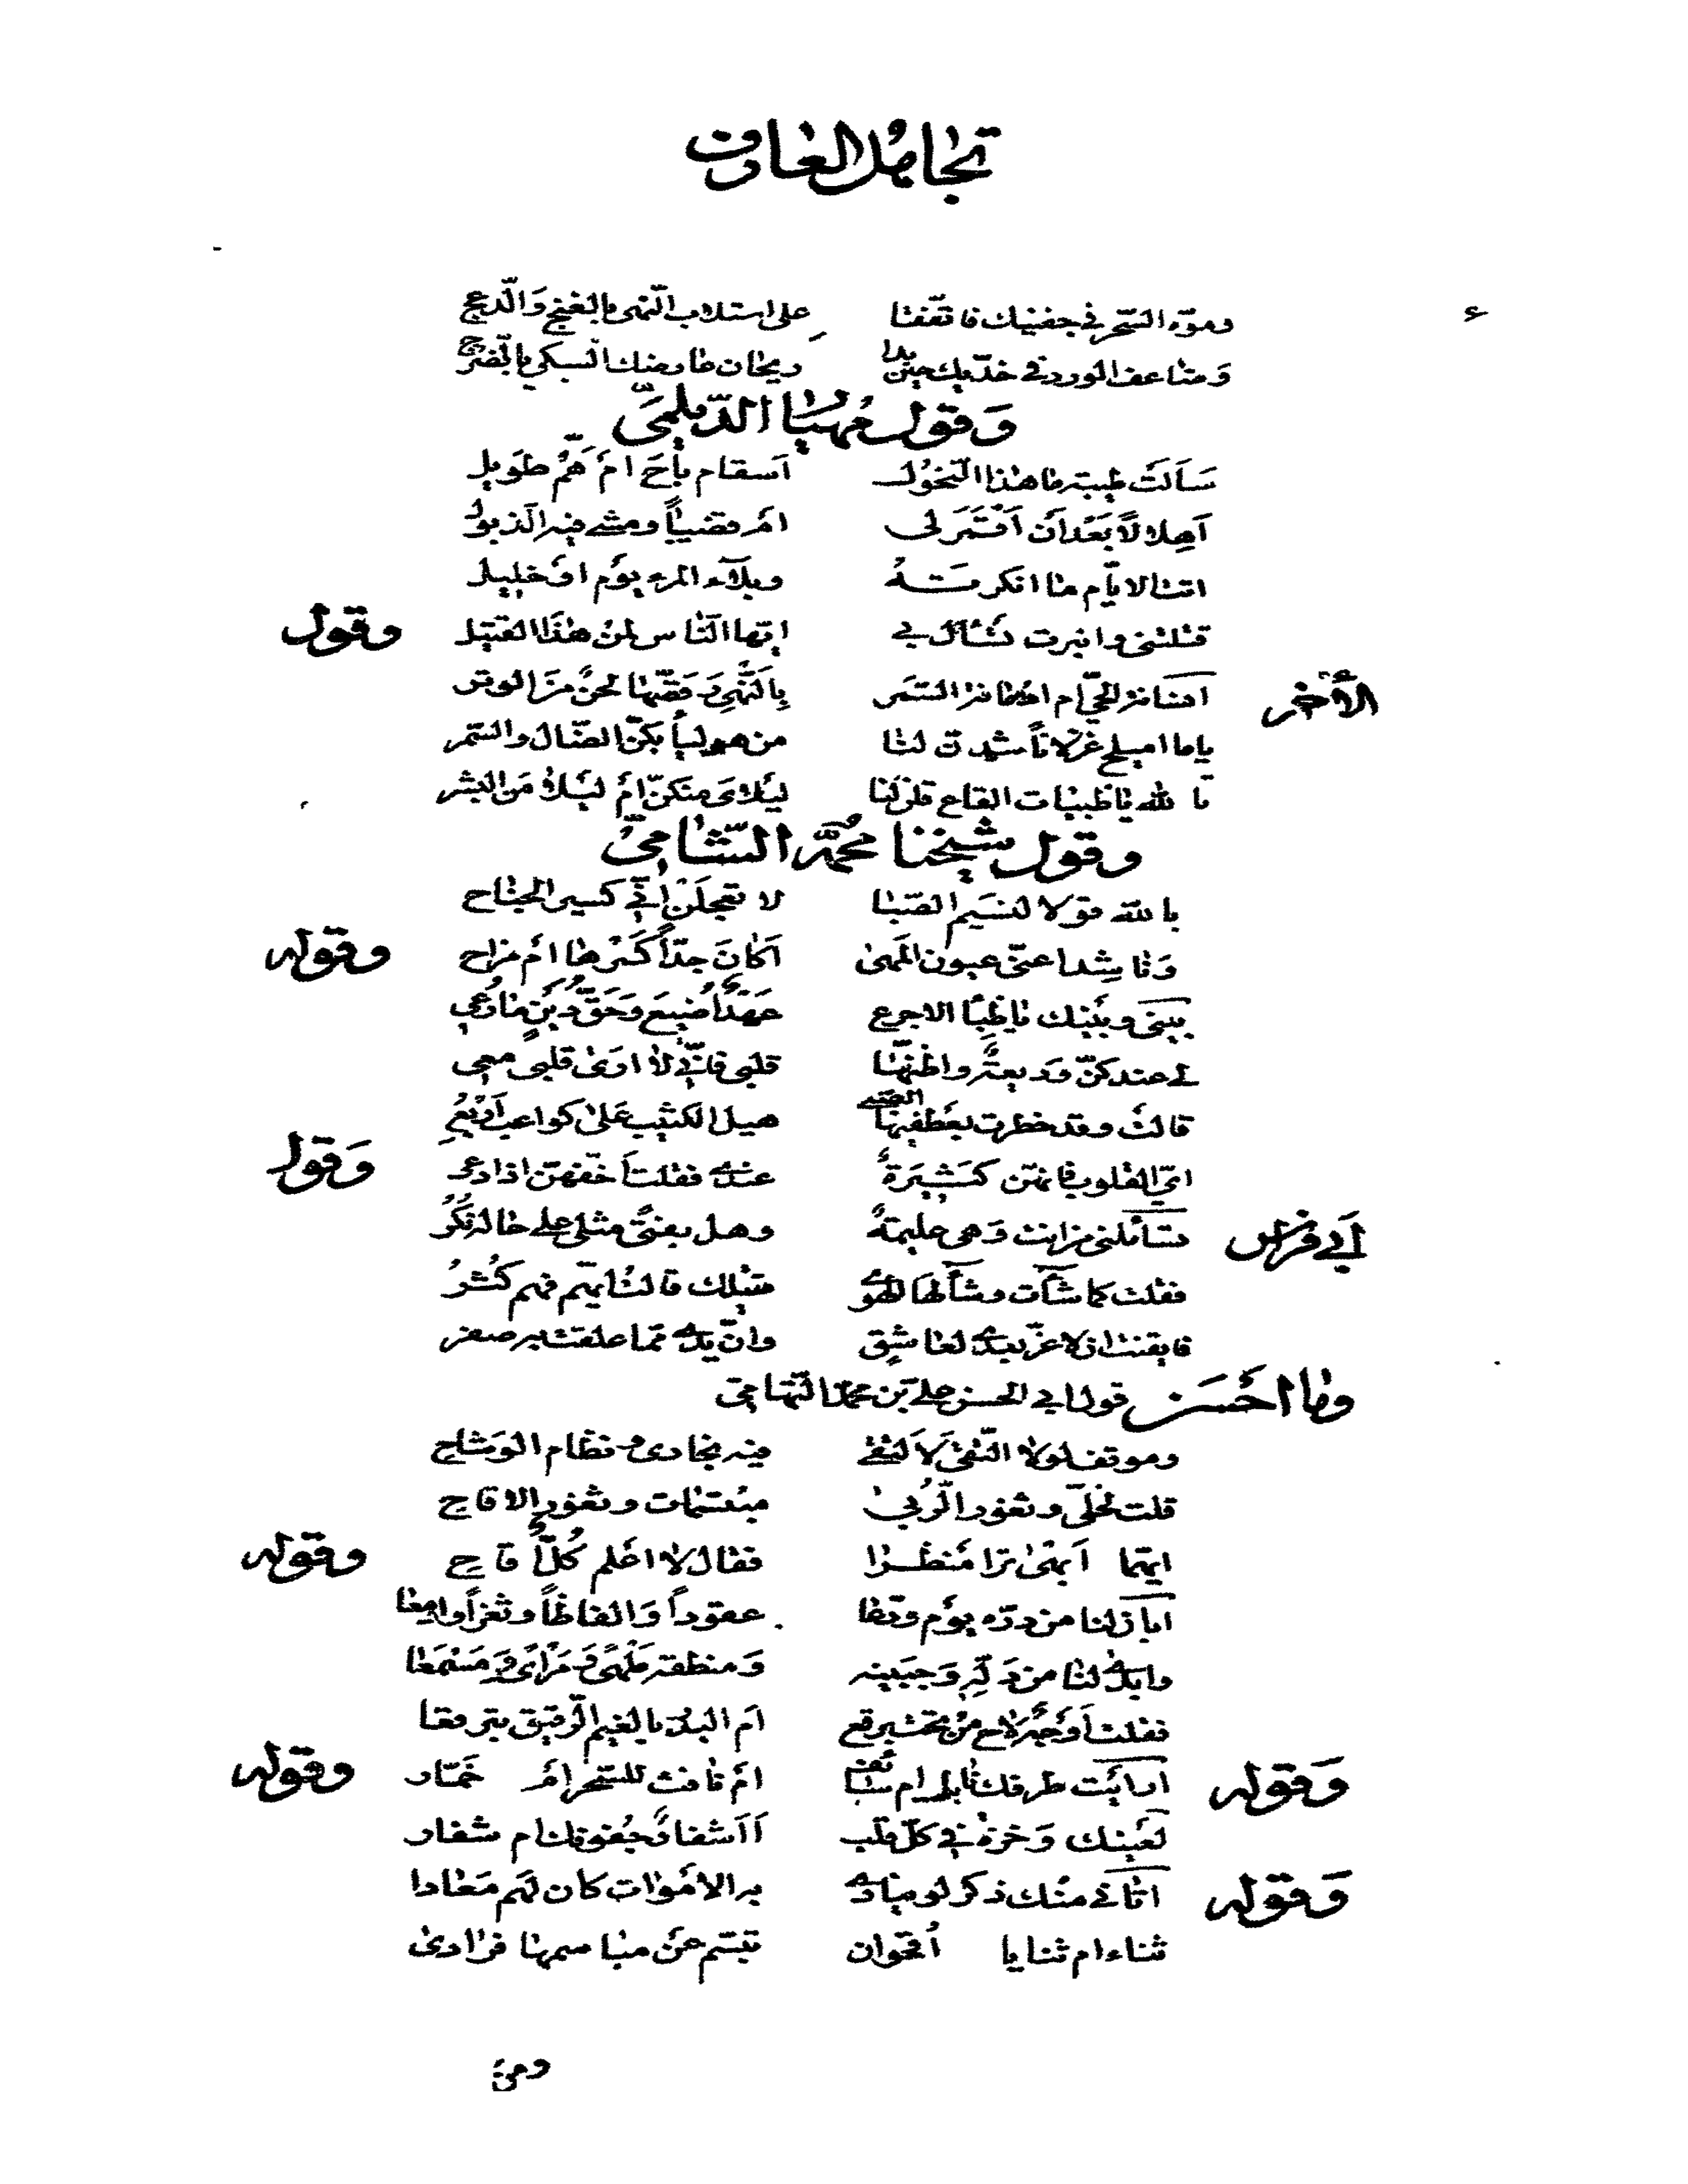 تجاهل العارف
وموّه السّحر في جفنيك فاتّفقا على استلاب النّهى بالغنج وَالدّعج
وَضاعف الورد في خدّيك حين بدا ريحان عارضك المسكي بالضرج
وَقول مُهيار الدّيلميّ
سَأَلَتْ ظبية ما هٰذا النّحُول أسقام باحَ أمْ هَمٌّ طَويل
أهلالًا بَعْد أن أقمَرَ لي أمْ قضيبًا ومشى فيه الذبول
انت الايّام ما انكرته وبلآء المرء يَوْم أوْ خليل
قتلتني وانبرت تسْأل بي ايّها النّاس لمنْ هٰذا القتيل وقول
الأخر
من هوليّا بكنّ الضّال والسّمر يا ما اميلح غزلانًا شدن لنا
تالله يا ظبيات القاع قلن لنا ليلاي منكنّ أمْ ليلىٰ مَن البشر
وقول شيخنا محُمّد الشّاميّ
بالله قولا لنسَيم الصّبا لا تعجلَنْ إنّي كسير الجناح
وَناشِدا عنّي عيون المَهىٰ أكانَ جدّاً كَسْرها أمْ مزاح وقوله
بيني وبَينك يا ظبا الاجرع عَهْدٌ أُضيع وَحَقّ دين ما رُعي
لي عندكنّ وَديعةٌ واظنّها قلبي فانّي لا أرىٰ قلبي معي
قالتْ وقد خطرت بعطفيها الصّبى هيل الكثيب عَلىٰ كواعب أرْبَعِ
ايّ القلوب فانهنّ كثيرَةٌ عندي فقلتُ أخفّهنّ اذا دعي وَقول
أبي فراس
تسَائلني من انت وَهي عليمةٌ وهل بفتىً مثلي على حاله نُكْرُ
فقلت كما شآت وشآ لها الهوى قتيلك قالتْ ايّهم فهم كُثْرُ
فايقنت ان لا عزّ بعدي لعاشِق وانّ يدي ممّا علقت به صفر
وما احْسَن قول ابي الحسن علي بن محمّد التّهامي
وموقف لولا التّقىٰ لَالتقى فيه نجادي ونظام الوَشاح
قلت لخلّي وثغور الرّبىٰ مبْتسمات وثغور الاقاح
ايّهما أبهىٰ ترا مَنظرا فقال لا اعْلم كُلٌّ اقاح وقوله
ابان لنا من درّه يَوْم ودّعا عقوداً وَالفاظاً وثغراً وادمعا
وابدى لنا من دَلّه وَجبينه وَمنطقه مَلْهىً وَمَرْأىً وَمَسْمَعا
فقلت أوَجْهٌ لاح منْ تحت برقع أم البدْر بالغيم الرّقيق تبرقعا
وَقوله
أمْ فانت للسّحر أمْ خَمّار وقوله
لعَينك وَخزة في كلّ قلب أأشفارٌ جُفونك أم شفار
وَقوله
اتاني منْك ذكر لو ينادى به الامْوات كان لهَم مَعٰادا
ثناء ام ثنايا أقحوان تبسّم عَنْ مباسمها فرادىٰ
ومن